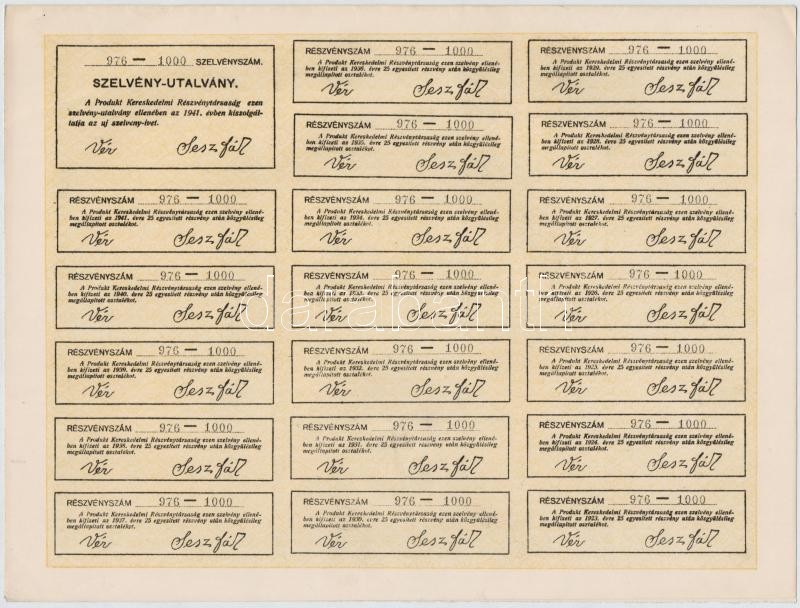 976 — 1000 SZELVÉNYSZÁM.
SZELVÉNY-UTALVÁNY.
A Produkt Kereskedelmi Részvénytársaság ezen
szelvény-utalvány ellenében az 1941. évben kiszolgál-
tatja az uj szelvény-ivet.
Vér Sesz Jál
RÉSZVÉNYSZÁM 976 — 1000
A Produkt Kereskedelmi Részvénytársaság ezen szelvény ellené-
ben kifizeti az 1941. évre 25 egyesitett részvény után közgyülésileg
megállapitott osztalékot.
Vér Sesz Jál
RÉSZVÉNYSZÁM 976 — 1000
A Produkt Kereskedelmi Részvénytársaság ezen szelvény ellené-
ben kifizeti az 1940. évre 25 egyesitett részvény után közgyülésileg
megállapitott osztalékot.
Vér Sesz Jál
RÉSZVÉNYSZÁM 976 — 1000
A Produkt Kereskedelmi Részvénytársaság ezen szelvény ellené-
ben kifizeti az 1939. évre 25 egyesitett részvény után közgyülésileg
megállapitott osztalékot.
Vér Sesz Jál
RÉSZVÉNYSZÁM 976 — 1000
A Produkt Kereskedelmi Részvénytársaság ezen szelvény ellené-
ben kifizeti az 1938. évre 25 egyesitett részvény után közgyülésileg
megállapitott osztalékot.
Vér Sesz Jál
RÉSZVÉNYSZÁM 976 — 1000
A Produkt Kereskedelmi Részvénytársaság ezen szelvény ellené-
ben kifizeti az 1937. évre 25 egyesitett részvény után közgyülésileg
megállapitott osztalékot.
Vér Sesz Jál
RÉSZVÉNYSZÁM 976 — 1000
A Produkt Kereskedelmi Részvénytársaság ezen szelvény ellené-
ben kifizeti az 1936. évre 25 egyesitett részvény után közgyülésileg
megállapitott osztalékot.
Vér Sesz Jál
RÉSZVÉNYSZÁM 976 — 1000
A Produkt Kereskedelmi Részvénytársaság ezen szelvény ellené-
ben kifizeti az 1935. évre 25 egyesitett részvény után közgyülésileg
megállapitott osztalékot.
Vér Sesz Jál
RÉSZVÉNYSZÁM 976 — 1000
A Produkt Kereskedelmi Részvénytársaság ezen szelvény ellené-
ben kifizeti az 1934. évre 25 egyesitett részvény után közgyülésileg
megállapitott osztalékot.
Vér Sesz Jál
RÉSZVÉNYSZÁM 976 — 1000
A Produkt Kereskedelmi Részvénytársaság ezen szelvény ellené-
ben kifizeti az 1933. évre 25 egyesitett részvény után közgyülésileg
megállapitott osztalékot.
Vér Sesz Jál
RÉSZVÉNYSZÁM 976 — 1000
A Produkt Kereskedelmi Részvénytársaság ezen szelvény ellené-
ben kifizeti az 1932. évre 25 egyesitett részvény után közgyülésileg
megállapitott osztalékot.
Vér Sesz Jál
RÉSZVÉNYSZÁM 976 — 1000
A Produkt Kereskedelmi Részvénytársaság ezen szelvény ellené-
ben kifizeti az 1931. évre 25 egyesitett részvény után közgyülésileg
megállapitott osztalékot.
Vér Sesz Jál
RÉSZVÉNYSZÁM 976 — 1000
A Produkt Kereskedelmi Részvénytársaság ezen szelvény ellené-
ben kifizeti az 1930. évre 25 egyesitett részvény után közgyülésileg
megállapitott osztalékot.
Vér Sesz Jál
RÉSZVÉNYSZÁM 976 — 1000
A Produkt Kereskedelmi Részvénytársaság ezen szelvény ellené-
ben kifizeti az 1929. évre 25 egyesitett részvény után közgyülésileg
megállapitott osztalékot.
Vér Sesz Jál
RÉSZVÉNYSZÁM 976 — 1000
A Produkt Kereskedelmi Részvénytársaság ezen szelvény ellené-
ben kifizeti az 1928. évre 25 egyesitett részvény után közgyülésileg
megállapitott osztalékot.
Vér Sesz Jál
RÉSZVÉNYSZÁM 976 — 1000
A Produkt Kereskedelmi Részvénytársaság ezen szelvény ellené-
ben kifizeti az 1927. évre 25 egyesitett részvény után közgyülésileg
megállapitott osztalékot.
Vér Sesz Jál
RÉSZVÉNYSZÁM 976 — 1000
A Produkt Kereskedelmi Részvénytársaság ezen szelvény ellené-
ben kifizeti az 1926. évre 25 egyesitett részvény után közgyülésileg
megállapitott osztalékot.
Vér Sesz Jál
RÉSZVÉNYSZÁM 976 — 1000
A Produkt Kereskedelmi Részvénytársaság ezen szelvény ellené-
ben kifizeti az 1925. évre 25 egyesitett részvény után közgyülésileg
megállapitott osztalékot.
Vér Sesz Jál
RÉSZVÉNYSZÁM 976 — 1000
A Produkt Kereskedelmi Részvénytársaság ezen szelvény ellené-
ben kifizeti az 1924. évre 25 egyesitett részvény után közgyülésileg
megállapitott osztalékot.
Vér Sesz Jál
RÉSZVÉNYSZÁM 976 — 1000
A Produkt Kereskedelmi Részvénytársaság ezen szelvény ellené-
ben kifizeti az 1923. évre 25 egyesitett részvény után közgyülésileg
megállapitott osztalékot.
Vér Sesz Jál
darabanth